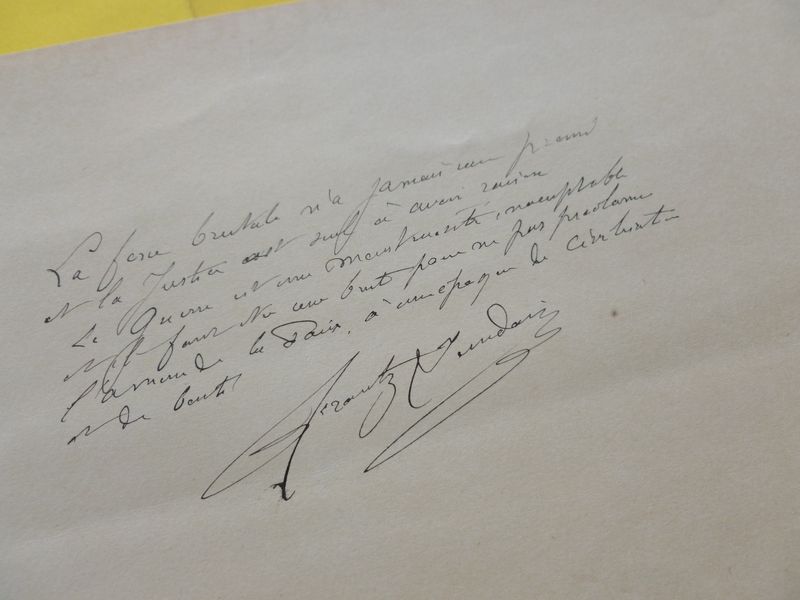 La force brutale n'a jamais rien prouvé
et la Justice est seule à avoir raison
La Guerre est une monstruosité inacceptable
et il faut être une brute pour ne pas proclamer
l'amour de la Paix, à une époque de civilisation
et de bonté
Frantz Jourdain